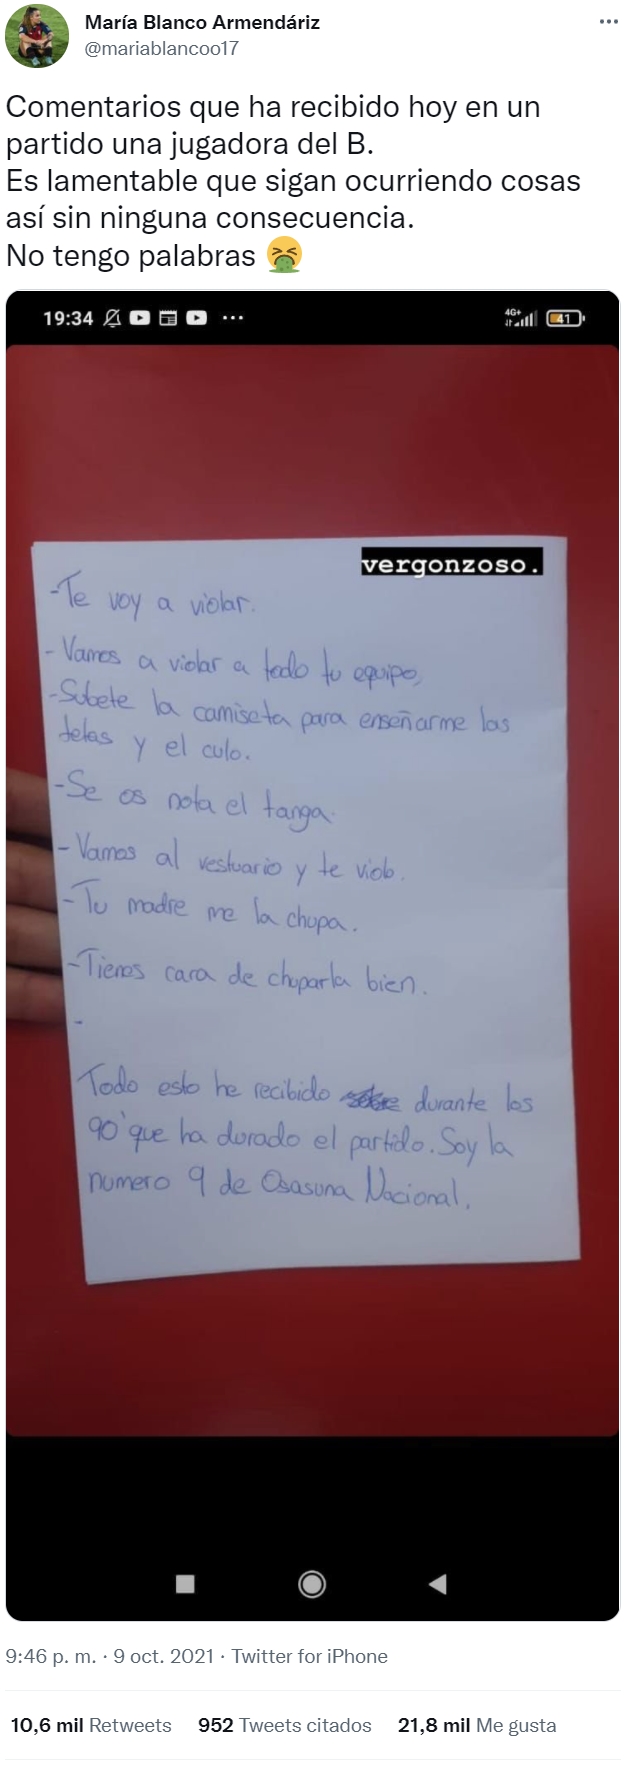 María Blanco Armendáriz
@mariablancoo17
Comentarios que ha recibido hoy en un
partido una jugadora del B.
Es lamentable que sigan ocurriendo cosas
así sin ninguna consecuencia.
No tengo palabras 🤮
19:34
4G+
41
vergonzoso.
-Te voy a violar.
-Vamos a violar a todo tu equipo,
-Subete la camiseta para enseñarme las
tetas y el culo.
-Se os nota el tanga.
-Vamos al vestuario y te violo.
-Tu madre me la chupa.
-Tienes cara de chuparla bien.
-
Todo esto he recibido durante los
90' que ha durado el partido. Soy la
numero 9 de Osasuna Nacional.
9:46 p. m. · 9 oct. 2021 · Twitter for iPhone
10,6 mil Retweets 952 Tweets citados 21,8 mil Me gusta